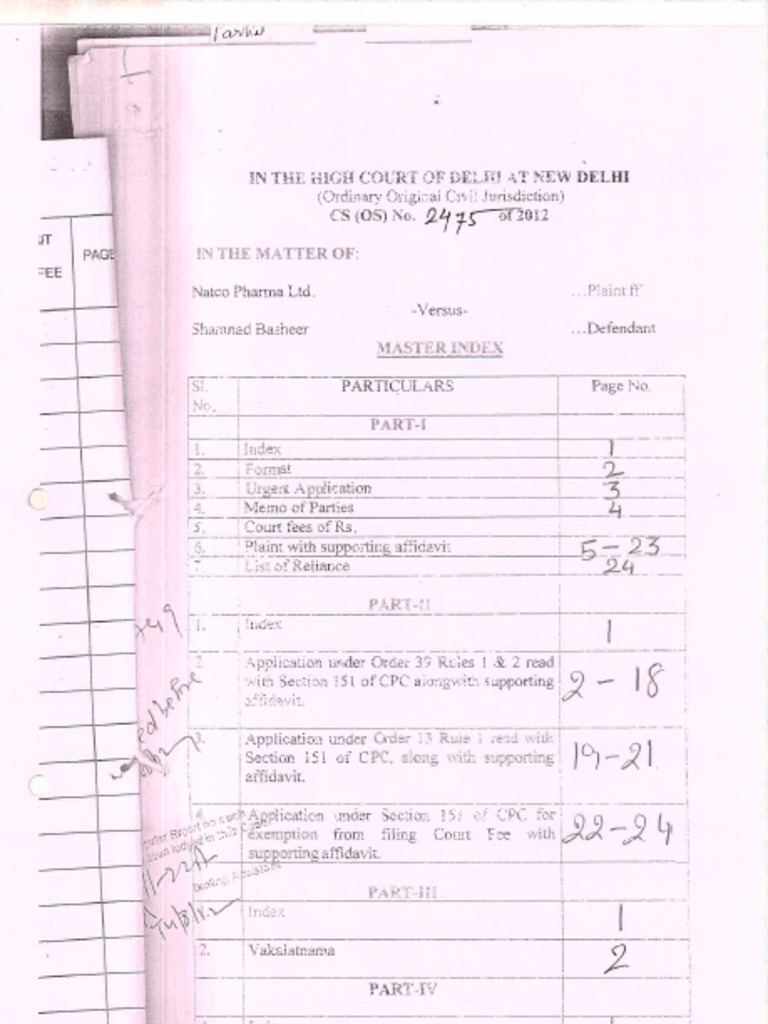 IN THE HIGH COURT OF DELHI AT NEW DELHI
(Ordinary Original Civil Jurisdiction)
CS (OS) No. 2475 of 2012
IN THE MATTER OF:
Natco Pharma Ltd. ...Plaintiff
-Versus-
Shamnad Basheer ...Defendant
MASTER INDEX
Sl. No. PARTICULARS Page No.
PART-I
1. Index 1
2. Format 2
3. Urgent Application 3
4. Memo of Parties 4
5. Court fees of Rs.
6. Plaint with supporting affidavit 5-23
7. List of Reliance 24
PART-II
1. Index 1
2. Application under Order 39 Rules 1 & 2 read
with Section 151 of CPC alongwith supporting
affidavit. 2-18
3. Application under Order 13 Rule 1 read with
Section 151 of CPC, along with supporting
affidavit. 19-21
4. Application under Section 151 of CPC for
exemption from filing Court Fee with
supporting affidavit. 22-24
PART-III
Index 1
2. Vakalatnama 2
PART-IV
FEE
PAGE